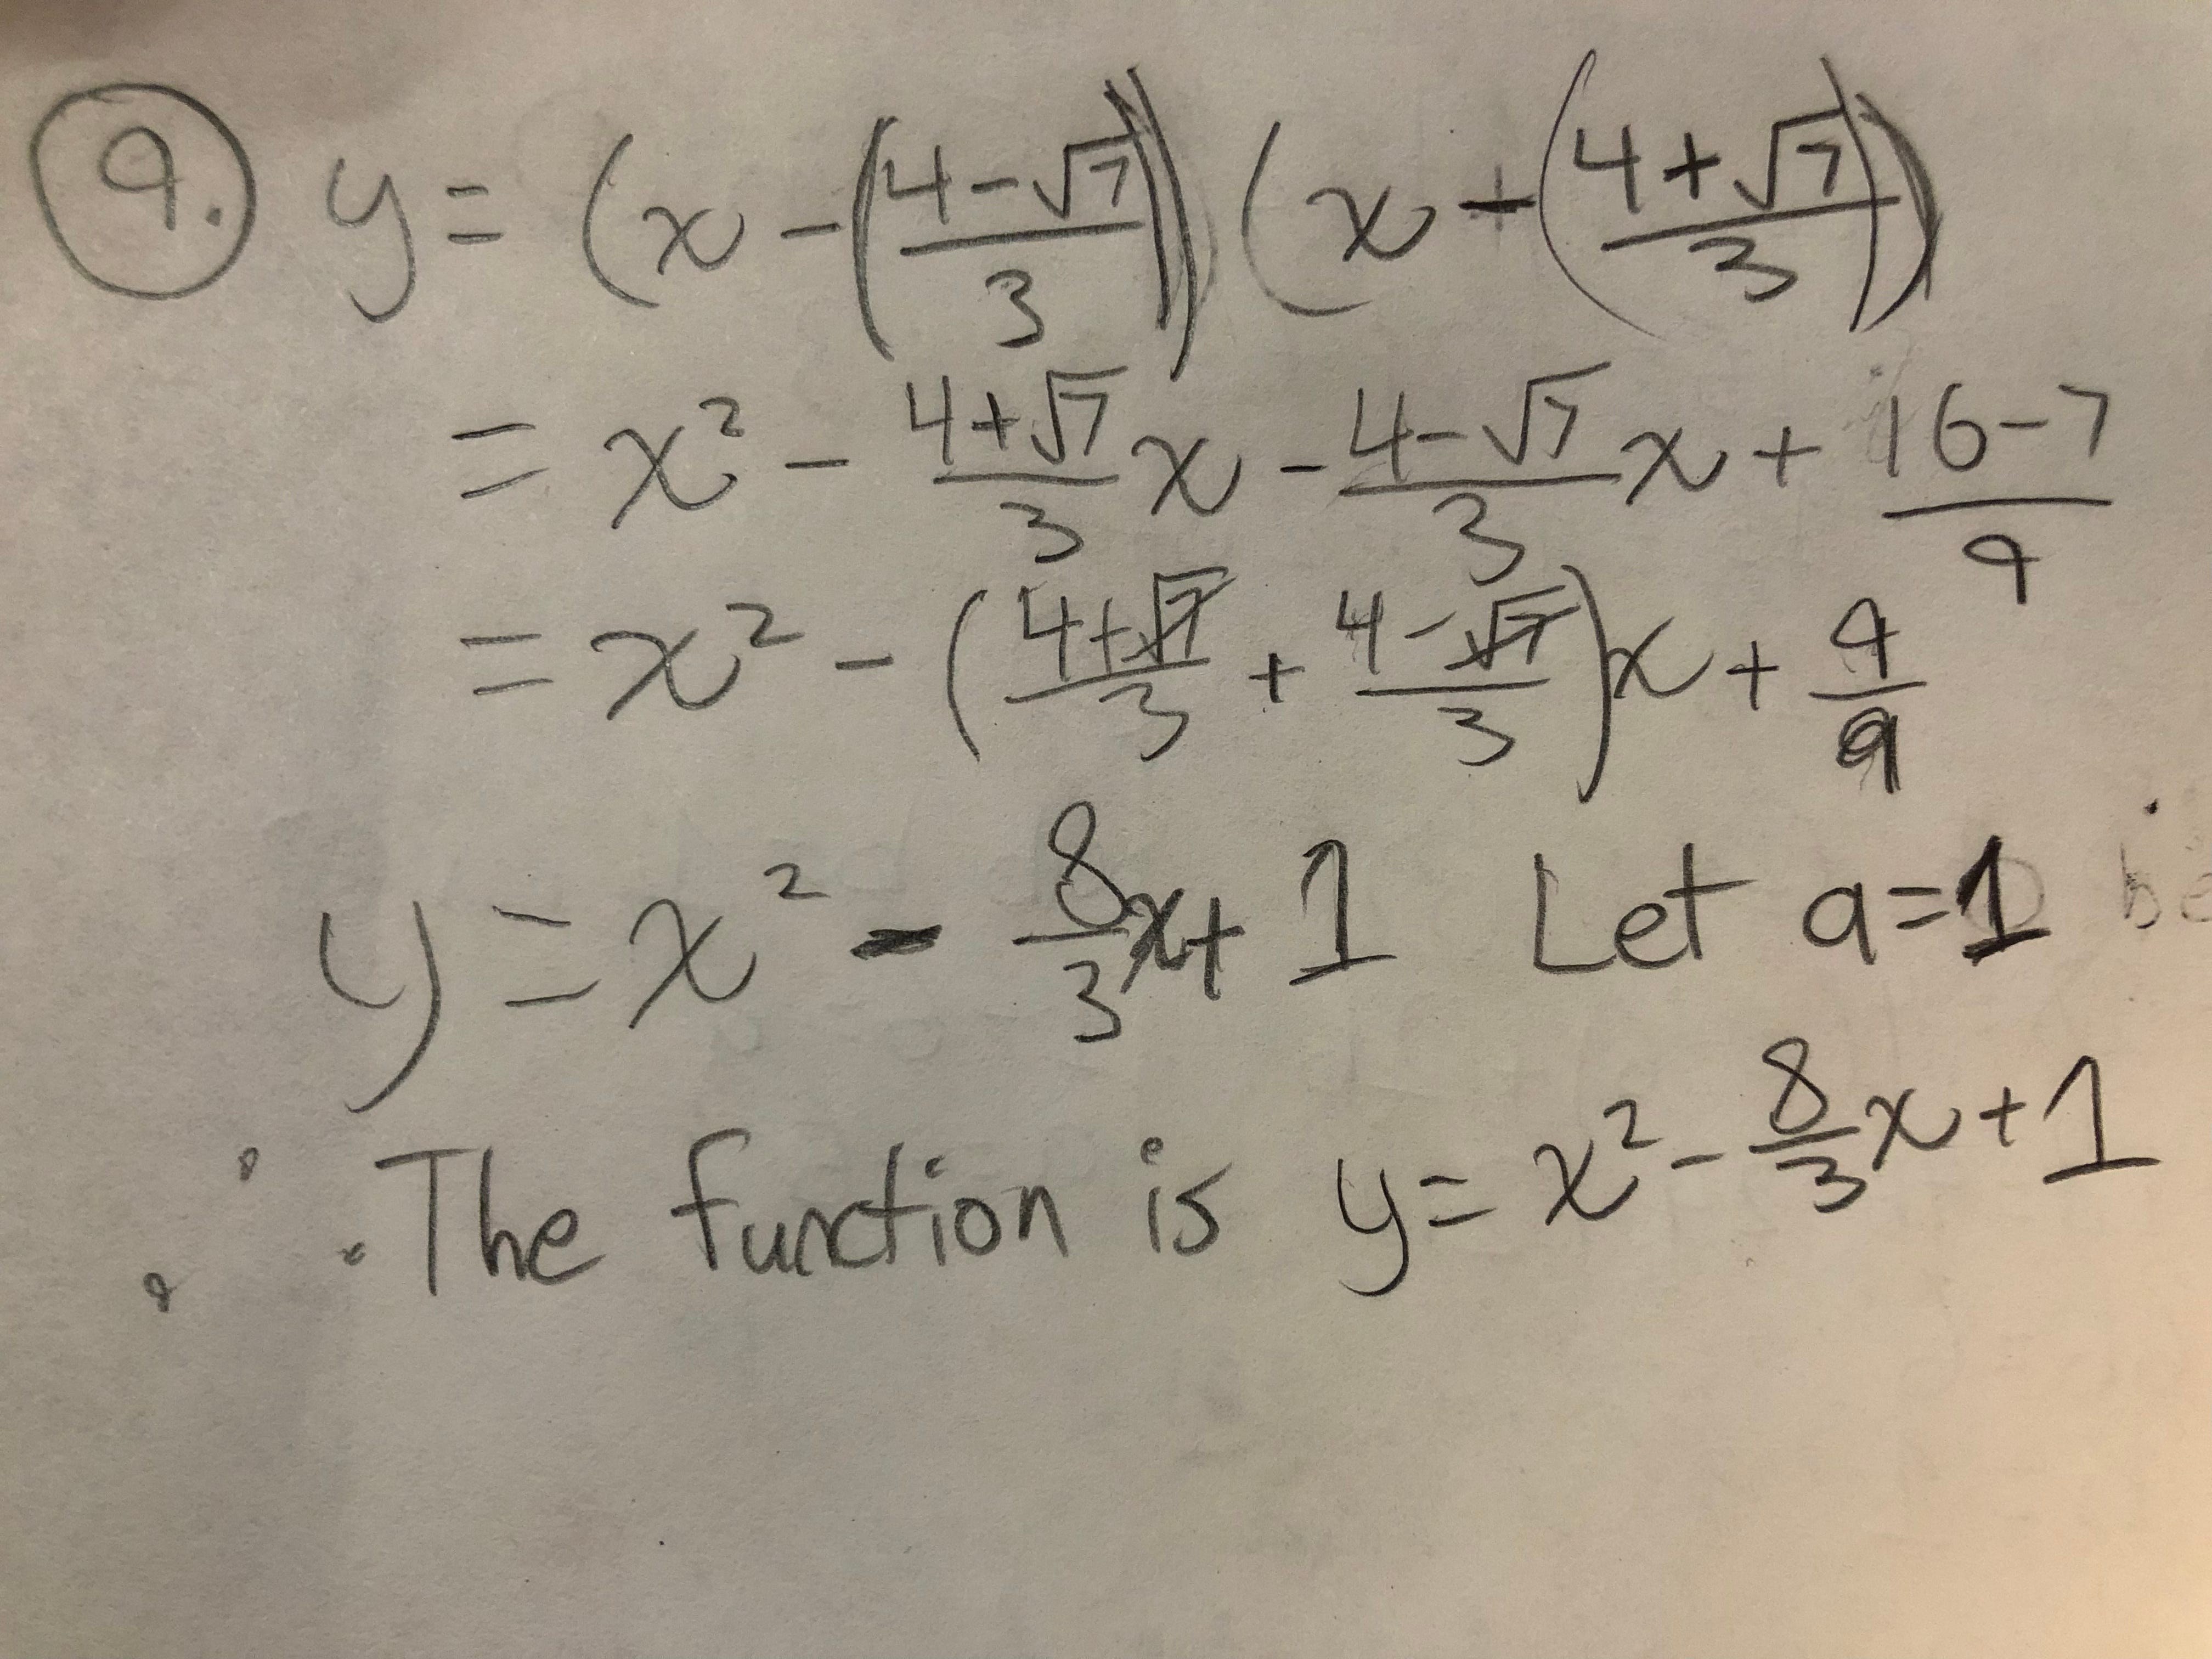 9. y = (x - (4-√7)/3) (x + (4+√7)/3)
= x² - (4+√7)/3 x - (4-√7)/3 x + (16-7)/9
= x² - ((4+√7)/3 + (4-√7)/3)x + 9/9
y = x² - 8/3 x + 1 Let a=1
∴ The function is y = x² - 8/3 x + 1